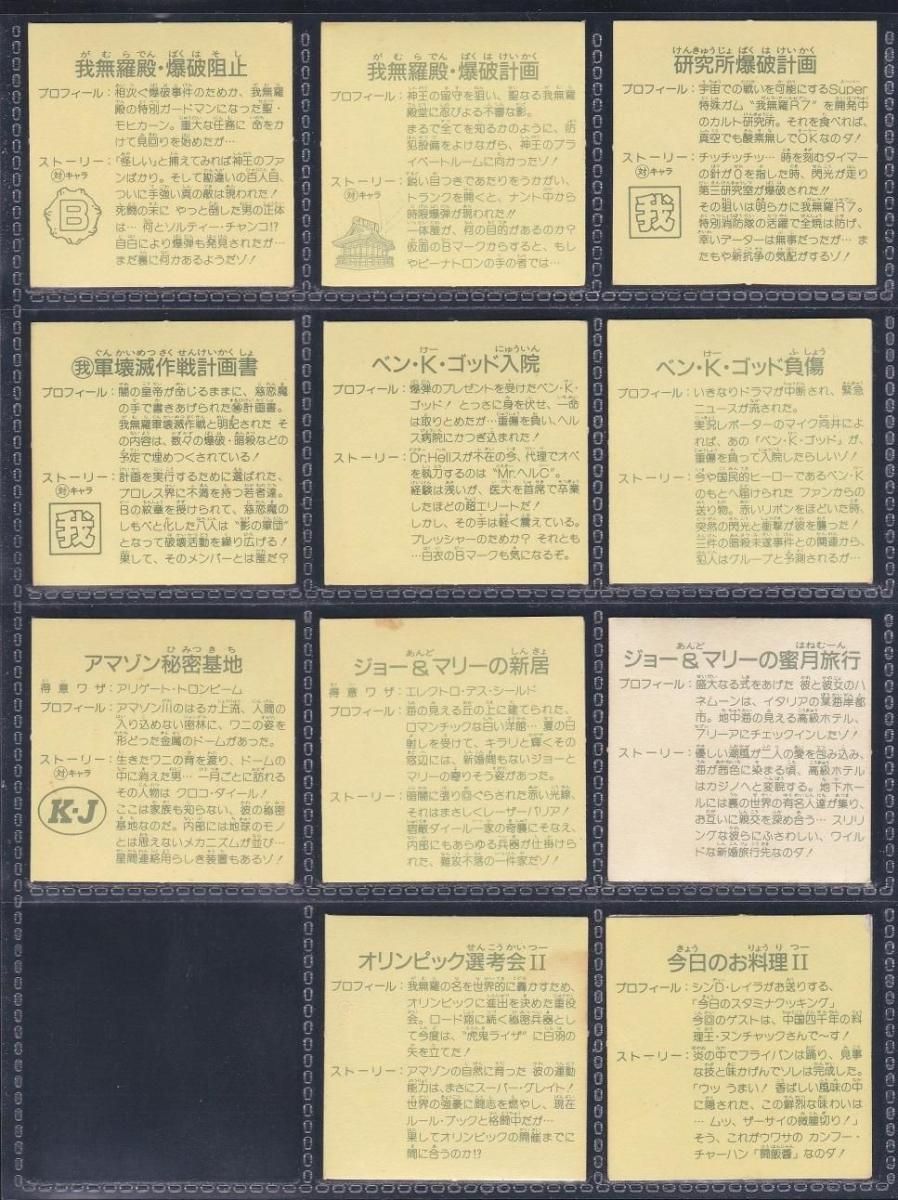 我無羅殿・爆破阻止
プロフィール：相次ぐ爆破事件のためか、我無羅
殿の特別ガードマンになった聖・
モヒカーン。重大な任務に 命をか
けて見回りを始めたが…
ストーリー：「怪しい」と捕えてみれば神王のファ
対キャラ
ンばかり。そして勘違いの百人目、
ついに手強い真の敵は現われた！
死闘の末に やっと倒した男の正体
は… 何とソルティー・チャンコ!?
自白により爆弾も発見されたが…
まだ裏に何かあるようだゾ！
B
我無羅殿・爆破計画
プロフィール：神王の留守を狙い、聖なる我無羅
殿堂に忍びよる不審な影。
まるで全てを知るかのように、防
犯設備をよけながら、神王のプラ
イベートルームに向かったゾ！
ストーリー：鋭い目つきであたりをうかがい、
対キャラ
トランクを開くと、ナント中から
時限爆弾が現われた!!
一体誰が、何の目的があるのか？
仮面のBマークからすると、もし
やビーナトロンの手の者では…
研究所爆破計画
プロフィール：宇宙での戦いを可能にするSuper
特殊ガム“我無羅R7”を開発中
のカルト研究所。それを食べれば、
真空でも酸素無しでOKなのダ！
ストーリー：チッチッチッ… 時を刻むタイマー
対キャラ
の針が0を指した時、閃光が走り
第三研究室が爆破された!!
その狙いは明らかに我無羅R7。
特別消防隊の活躍で全焼は防げ、
幸いデーターは無事だったが… ま
たもや新抗争の気配がするゾ！
我
我軍壊滅作戦計画書
プロフィール：闇の皇帝が命じるままに、慈恋魔
の手で書きあげられた㊙計画書。
我無羅軍壊滅作戦と明記された そ
の内容は、数々の爆破・暗殺などの
予定で埋めつくされている！
ストーリー：計画を実行するために選ばれた、
対キャラ
プロレス界に不満を持つ若者達。
Bの紋章を授けられて、慈恋魔の
しもべと化した八人は“影の軍団”
となって破壊活動を繰り広げる！
果して、そのメンバーとは誰だ？
我
ベン・K・ゴッド入院
プロフィール：爆弾のプレゼントを受けたベン・K・
ゴッド！とっさに身を伏せ、一命
は取りとめたが… 重傷を負い、ヘル
ス病院にかつぎ込まれた！
ストーリー：Dr.Hellスが不在の今、代理でオペ
を執刀するのは“Mr.ヘルC”。
経験は浅いが、医大を首席で卒業
したほどの超エリートだ！
しかし、その手は軽く震えている。
プレッシャーのためか？ それとも
…白衣のBマークも気になるぞ。
ベン・K・ゴッド負傷
プロフィール：いきなりドラマが中断され、緊急
ニュースが流された。
実況レポーターのマイク向井によ
れば、あの「ベン・K・ゴッド」が、
重傷を負って入院したらしいゾ！
ストーリー：今や国民的ヒーローであるベン・K
のもとへ届けられた ファンからの
送り物。赤いリボンをほどいた時、
突然の閃光と衝撃が彼を襲った！
三件の暗殺未遂事件との関連から、
犯人はグループと予測されるが…
アマゾン秘密基地
得意ワザ：アリゲート・トロンビーム
プロフィール：アマゾン川のはるか上流、人間の
入り込めない密林に、ワニの姿を
形どった金属のドームがあった。
ストーリー：生きたワニの背を渡り、ドームの
対キャラ
中に消えた男… 一月ごとに訪れる
その人物は クロコ・ダイール！
ここは家族も知らない、彼の秘密
基地なのだ。内部には地球のモノ
とは思えないメカニズムが並び…
星間連絡用らしき装置もあるゾ！
K-J
ジョー＆マリーの新居
得意ワザ：エレクトロ・デス・シールド
プロフィール：海の見える丘の上に建てられた、
ロマンチックな白い洋館… 夏の日
射しを受けて、キラリと輝くその
窓辺には、新婚間もないジョーと
マリーの寄りそう姿があった。
ストーリー：暗闇に張り回ぐらされた赤い光線、
それはまさしくレーザーバリア！
宿敵ダイール一家の奇襲にそなえ、
内部にもあらゆる兵器が仕掛けら
れた、難攻不落の一件家だゾ！
ジョー＆マリーの蜜月旅行
プロフィール：盛大なる式をあげた 彼と彼女のハ
ネムーンは、イタリアの某海岸都
市。地中海の見える高級ホテル、
プリーアにチェックインしたゾ！
ストーリー：優しい潮風が二人の愛を包み込み、
海が茜色に染まる頃、高級ホテル
はカジノへと変貌する。地下ホー
ルには裏の世界の有名人達が集り、
お互いに親交を深め合う… スリリ
ングな彼らにふさわしい、ワイル
ドな新婚旅行先なのダ！
オリンピック選考会II
プロフィール：我無羅の名を世界的に轟かすため、
オリンピックに進出を決めた重役
会。ロード翔に続く秘密兵器とし
て今度は、“虎鬼ライザ”に白羽の
矢を立てた！
ストーリー：アマゾンの自然に育った 彼の運動
能力は、まさにスーパー・グレイト！
世界の強豪に闘志を燃やし、現在
ルール・ブックと格闘中だが…
果してオリンピックの開催までに
間に合うのか!?
今日のお料理II
プロフィール：シンD・レイラがお送りする、
「今日のスタミナクッキング」
今回のゲストは、中国四千年の料
理王・ヌンチャックさんで～す！
ストーリー：炎の中でフライパンは踊り、見事
な技と味かげんでソレは完成した。
「ウッ うまい！ 香ばしい風味の中
に隠された、この鮮烈な味わいは
… ムッ、ザーサイの微塵切り！」
そう、これがウワサの カンフー・
チャーハン「開飯醤」なのダ！